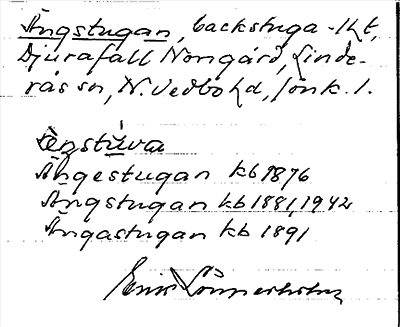 Ängstugan, backstuga - lht,
Djurafall Norrgård, Linde-
rås sn, N. Vedbo hd, Jönk. l.
Ängestugan kb 1876
Ängstugan kb 1881, 1942
Ängastugan kb 1891
Erik Lönnerholm